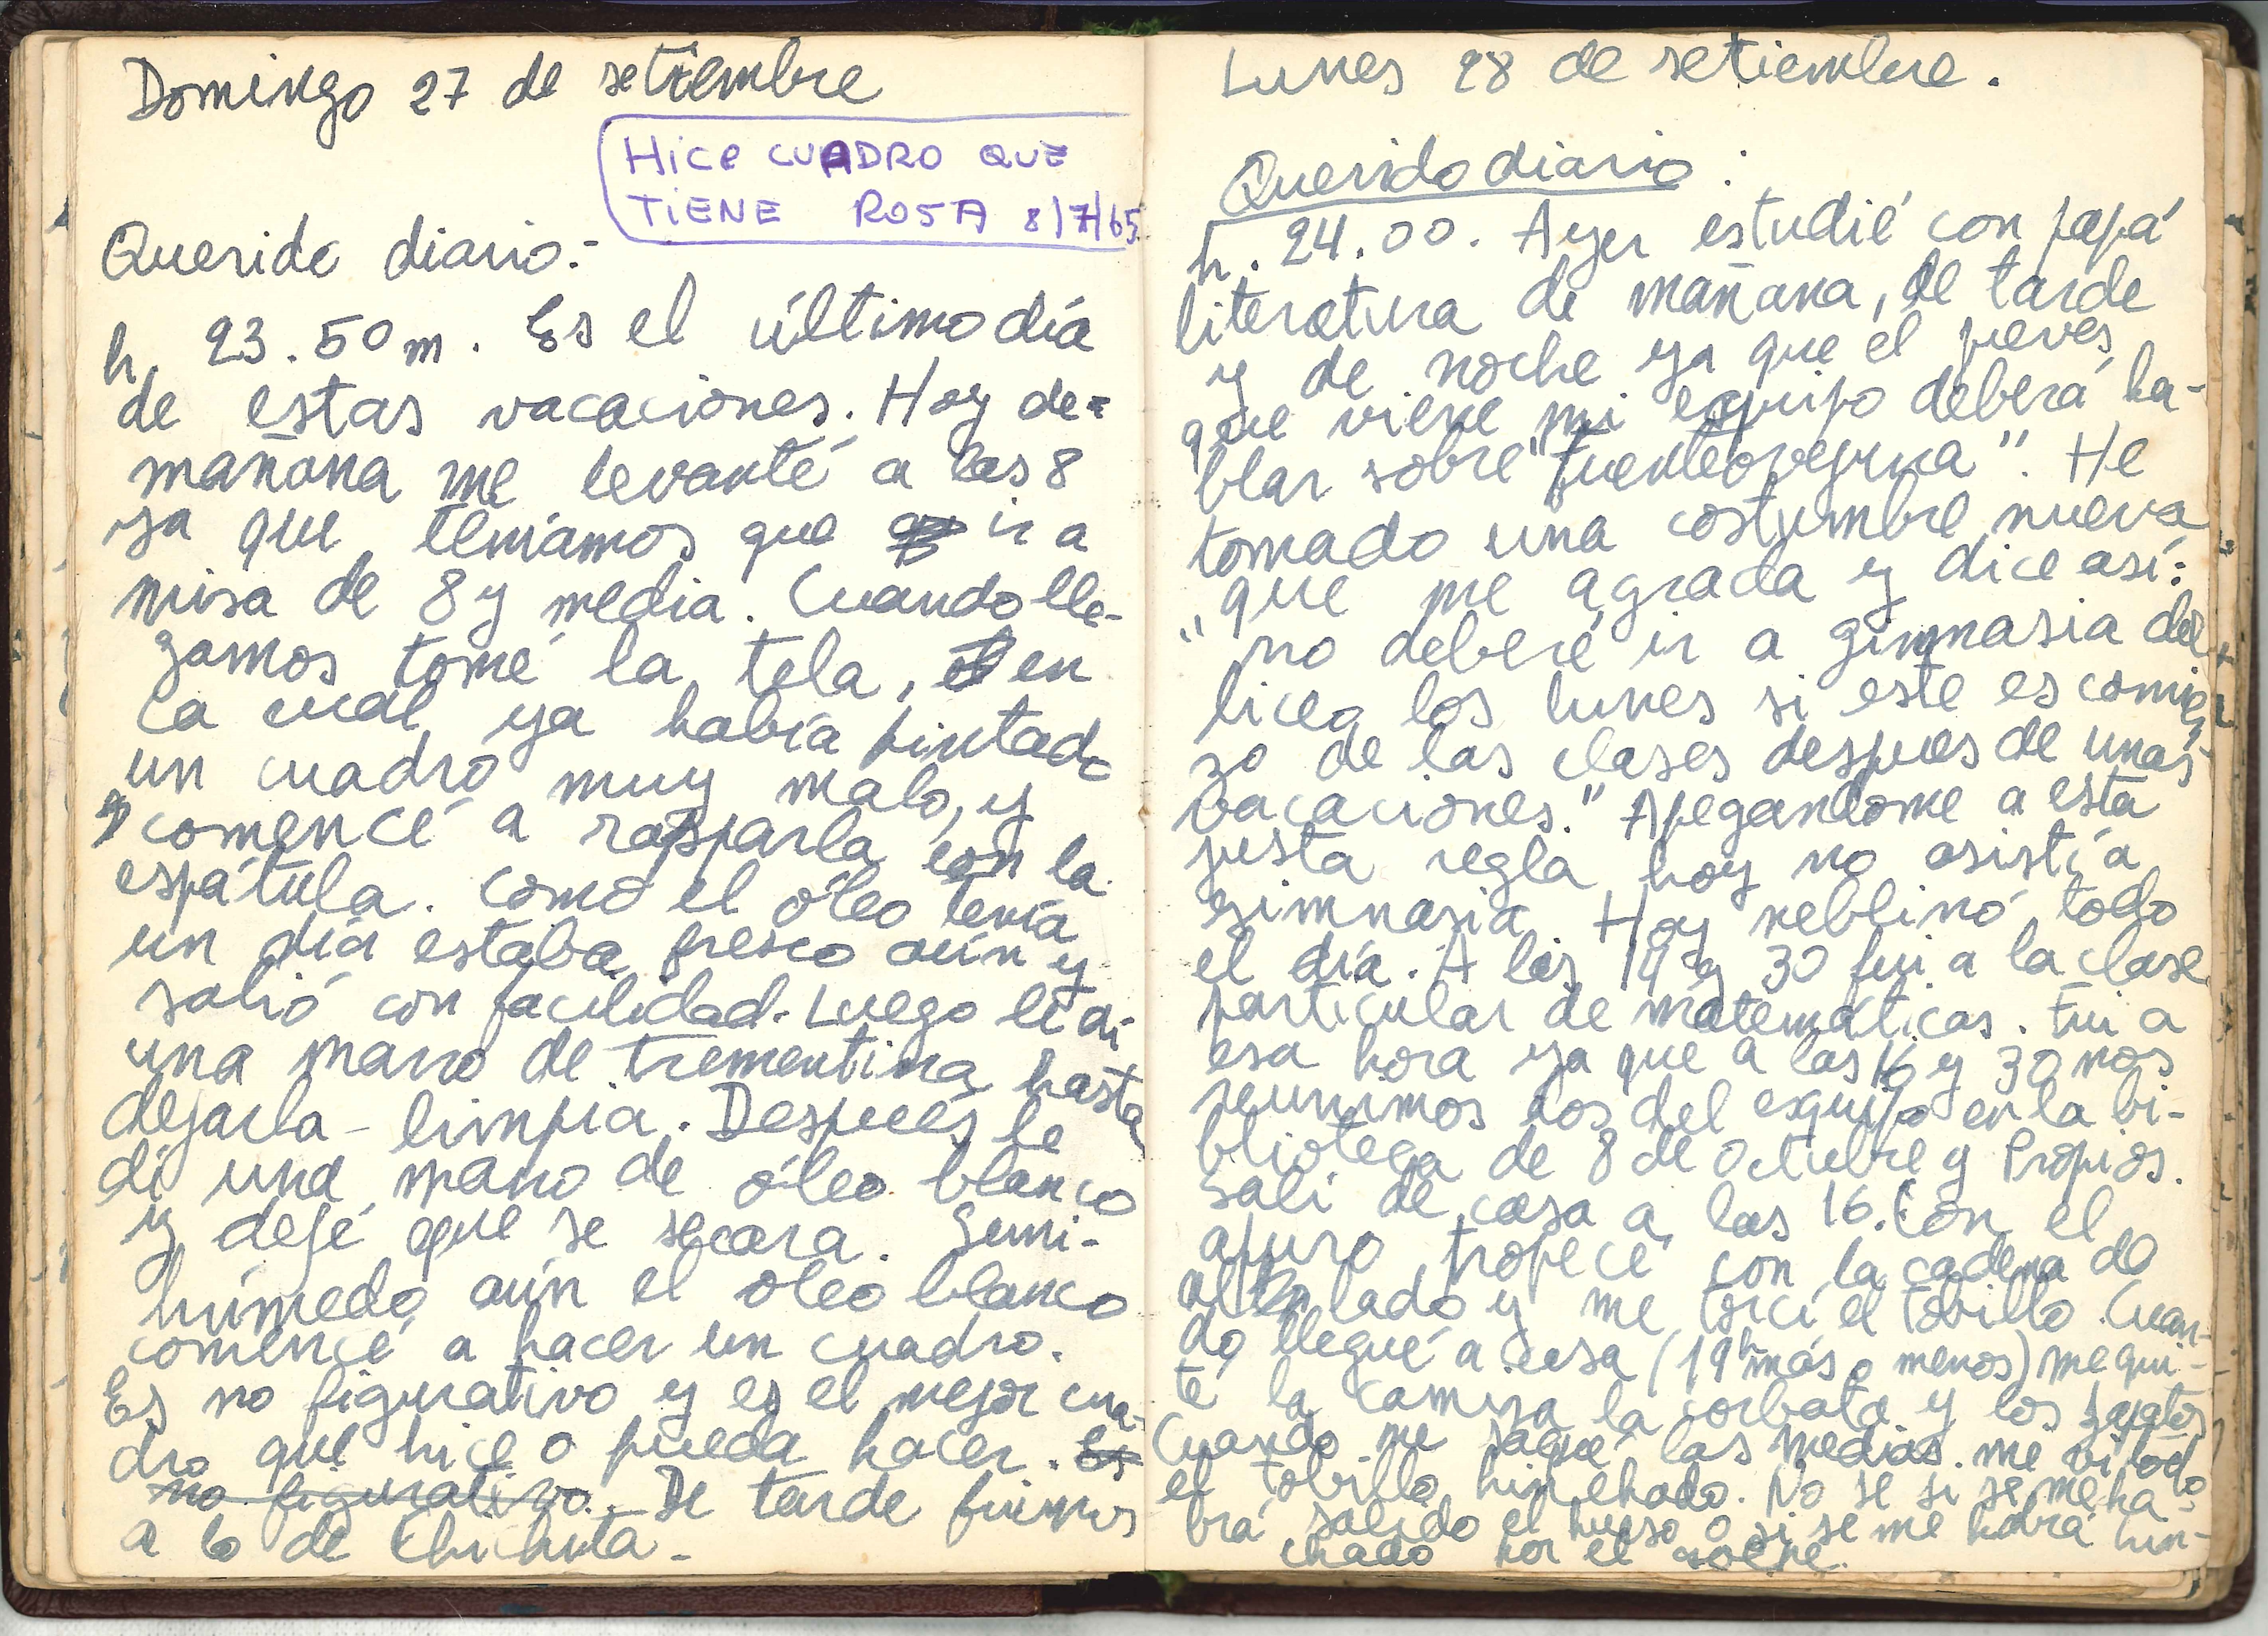 Domingo 27 de setiembre
Hice CUADRO QUE
TiENE ROSA 8/7/65
Querido diario:-
h. 23.50 m. Es el último día
de estas vacaciones. Hoy de=
mañana me levanté a las 8
ya que teníamos que ir a
misa de 8 y media. Cuando lle-
gamos tomé la tela, en
la cual ya había pintado
un cuadro muy malo, y
comencé a rasparla con la
espátula. Como el óleo tenía
un día estaba fresco aún y
salió con facilidad. Luego le di
una mano de trementina hasta
dejarla limpia. Después le
di una mano de óleo blanco
y dejé que se secara. Semi-
húmedo aún el óleo blanco
comencé a hacer un cuadro.
Es no figurativo y es el mejor cua-
dro que hice o pueda hacer. Es
no figurativo. De tarde fuimos
a lo de Chichita.-
Lunes 28 de setiembre.
Querido diario:
h. 24.00. Ayer estudié con papá
literatura de mañana, de tarde
y de noche ya que el jueves
que viene mi equipo deberá ha-
blar sobre "Fuenteovejuna". He
tomado una costumbre nueva
que me agrada y dice así:
"no deberé ir a gimnasia del
liceo los lunes si este es comien
zo de las clases despues de unas
vacaciones." Apegandome a esta
justa regla hoy no asistí a
gimnasia. Hoy neblinó todo
el día. A las 14 y 30 fui a la clase
particular de matemáticas. Fui a
esa hora ya que a las 16 y 30 nos
reunimos los del equipo en la bi-
blioteca de 8 de Octubre y Propios.
Salí de casa a las 16. Con el
apuro tropecé con la cadena de
al lado y me torcí el tobillo. Cuan-
do llegué a casa (19h más o menos) me qui-
té la camisa la corbata y los zapatos
Cuando me saqué las medias me vi todo
el tobillo hinchado. No se si se me ha-
brá salido el hueso o si se me habrá hin-
chado por el golpe.